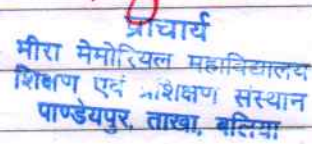 प्राचार्य
मीरा मेमोरियल महाविद्यालय
शिक्षण एवं प्रशिक्षण संस्थान
पाण्डेयपुर, ताखा, बलिया